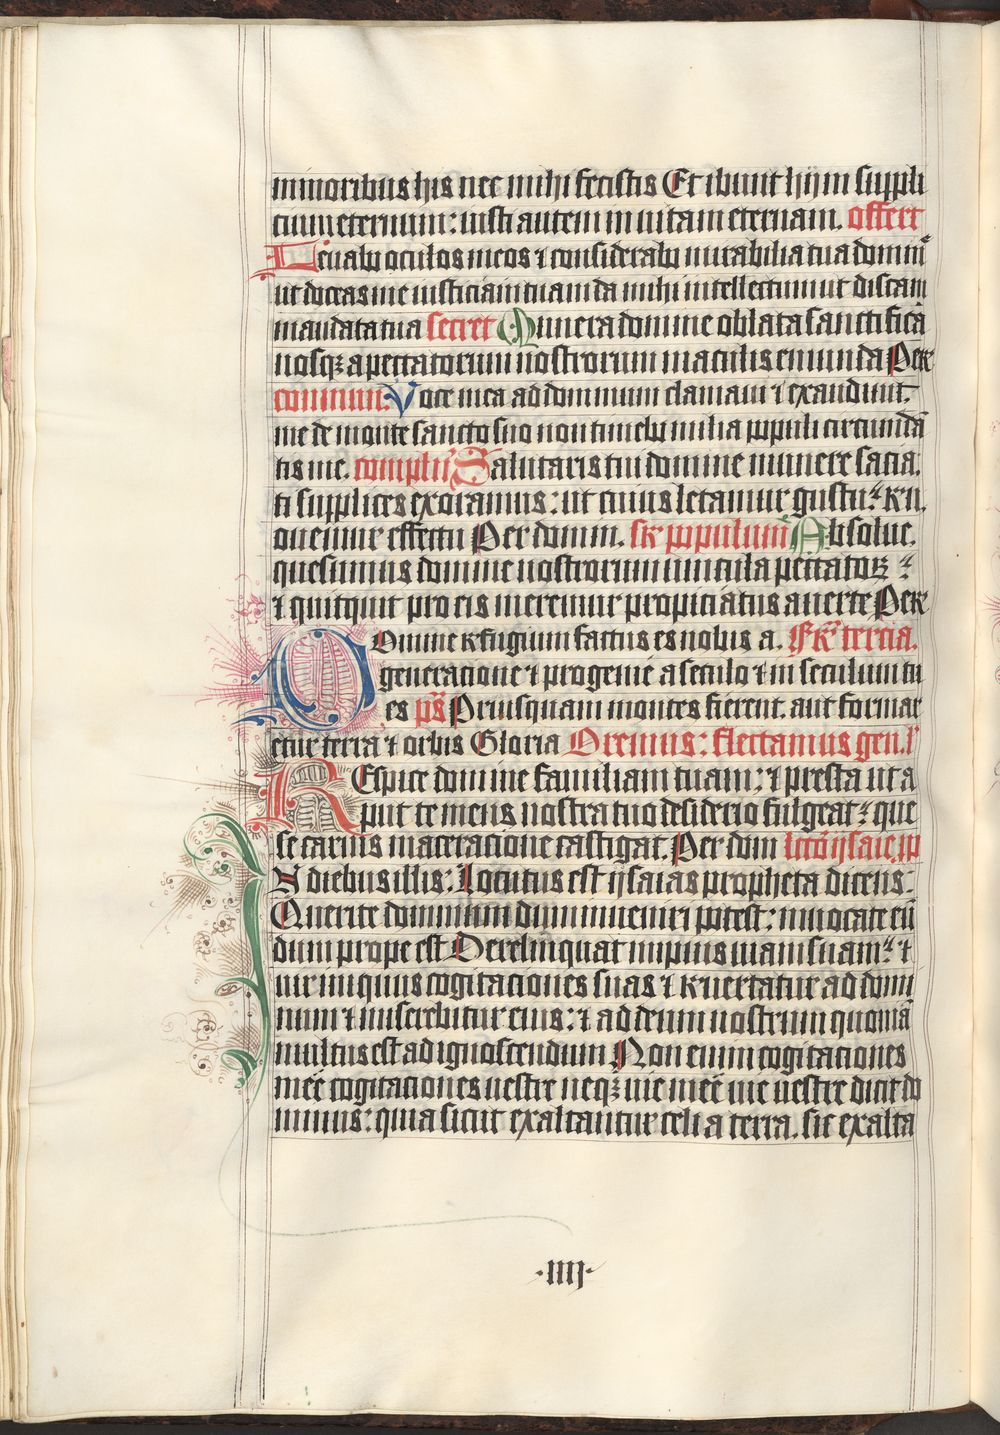 minoribus his nec mihi fecistis Et ibunt hij in suppli
cium eternum: iusti autem in uitam eternam. offert
Leuabo oculos meos ⁊ considerabo mirabilia tua domine
ut doceas me iusticiam tuam da mihi intellectum ut discam
mandata tua secret Munera domine oblata sanctificā
nosqꝫ a peccatorum nostrorum maculis emunda Per
commun. Voce mea ad dominum clamaui ⁊ exaudiuit
me de monte sancto suo non timebo milia populi circumdā
tis me. complen Salutaris tui domine munere sacia
ti supplices exoramus: ut cuius letamur gustu: ren
ouemur effectu Per domin. sr populum Absolue
quesumus domine nostrorum uincula peccatoꝝ
⁊ quitquit pro eis meremur propiciatus auerte Per
Domine refugium factus es nobis a. Fr tercia.
generacione ⁊ progenie a seculo ⁊ in seculum tu
es ps Priusquam montes fierent. aut formar
etur terra ⁊ orbis Gloria Oremus: flectamus gen.
REspice domine familiam tuam: ⁊ presta ut a
put te mens nostra tuo desiderio fulgeat: que
se carnis maceracione castigat. Per dom lectō ysaie. pp
IN diebus illis: Locutus est ysaias propheta dicens:
Querite dominum dum inueniri potest: inuocate eū
dum prope est Derelinquat impius uiam suam: ⁊
uir iniquus cogitaciones suas ⁊ reuertatur ad domi
num ⁊ miserebitur eius: ⁊ ad deum nostrum quoniā
multus est ad ignoscendum Non enim cogitaciones
mee cogitaciones uestre neqꝫ uie mee uie uestre dicit do
minus: quia sicut exaltantur celi a terra. sic exalta
·IIIJ·